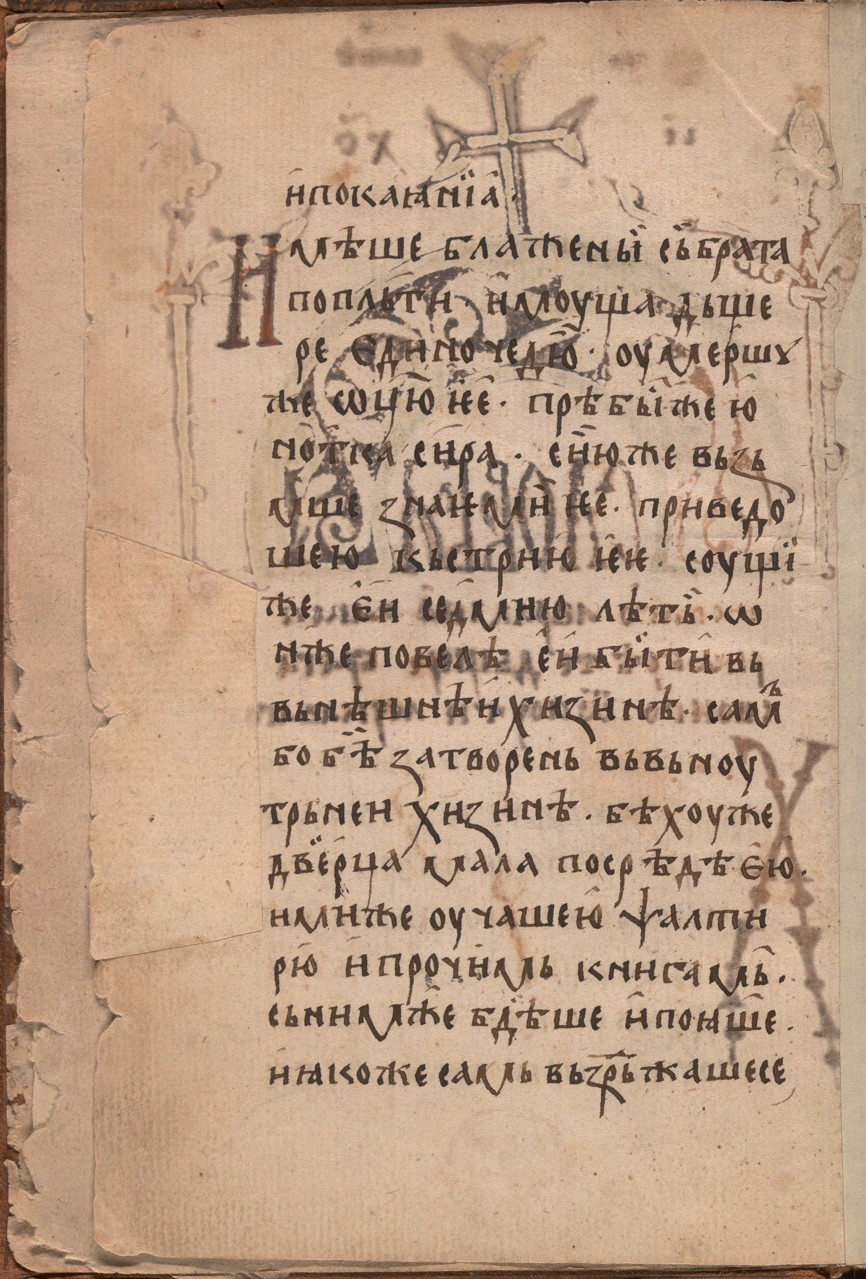 и҆покаꙗнїа҆ ·
Имѣше блаженыи҆ сь҆брата
поплъти · и҆моуща дьще
ре є҆диночедꙋю҆ · оумершꙋ
же ѡц҃ю҆ ѥ҆е · прѣбыже ю҆
но҆тка си҆ра · сї҆юже вьзь
мше знаѥми ѥ҆е · приведо
шею кьстрїю҆ ѥ҆ѥ · соущи
же є҆и седмїю лѣть҆ · ѡ҆
нже повелѣ є҆и быти҆ вь
вьнѣшнѣи хизинѣ · самь
бо бѣ҆ затворень вьвьноу
трьнеи хизинѣ · бѣхоуже
двер҆ца мала посрѣдѣ є҆ю҆ ·
имиже оучашею҆ ѱалти
рю҆ и҆прочїимь книгамь ·
сьнимже бдѣше и҆поꙗше ·
иꙗкоже самь вьзрьжашесе